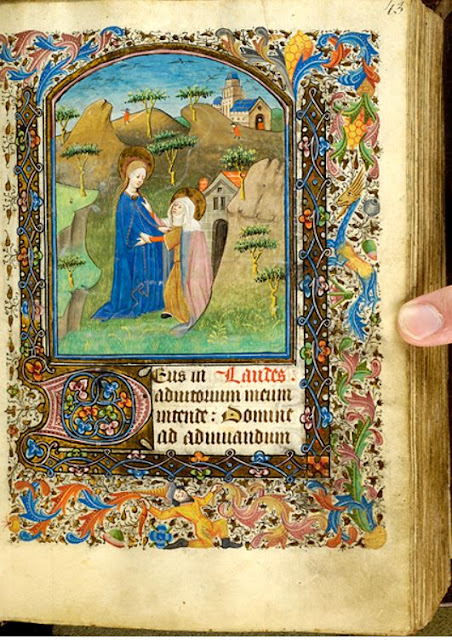 43
Deus in Laudes.
adiutorium meum
intende: Domine
ad adiuuandum